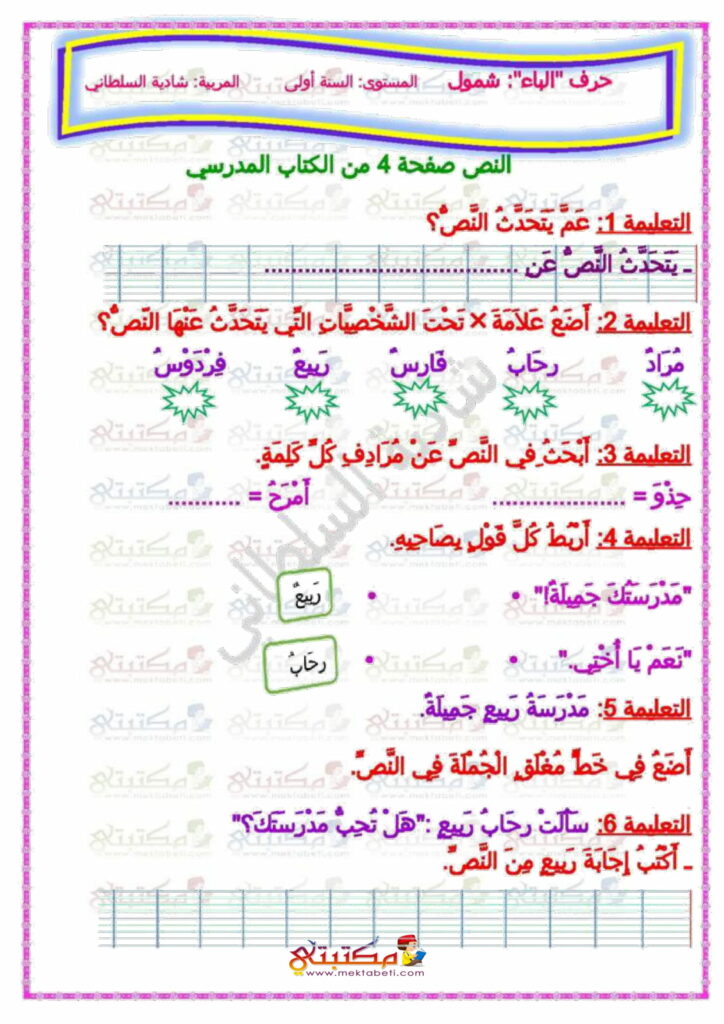 حرف "الباء": شمول المستوى: السنة أولى المربية: شادية السلطاني
النص صفحة 4 من الكتاب المدرسي
التعليمة 1: عَمَّ يَتَحَدَّثُ النَّصُّ؟
ـ يَتَحَدَّثُ النَّصُّ عَن ......................................
التعليمة 2: أَضَعُ عَلَامَةَ × تَحْتَ الشَّخْصِيَّاتِ التِّي يَتَحَدَّثُ عَنْهَا النَّصُّ؟
مُرَادُ رِحَابُ فَارِسُ رَبِيعُ فِرْدَوْسُ
التعليمة 3: أَبْحَثُ فِي النَّصِّ عَنْ مُرَادِفِ كُلِّ كَلِمَةٍ.
حِذْوَ = .................... أَمْرَحُ = ...........
التعليمة 4: أَرْبُطُ كُلَّ قَوْلٍ بِصَاحِبِهِ.
"مَدْرَسَتُكَ جَمِيلَةٌ!" • • رَبِيعٌ
"نَعَمْ يَا أُخْتِي." • • رِحَابُ
التعليمة 5: مَدْرَسَةُ رَبِيعٍ جَمِيلَةٌ.
أَضَعُ فِي خَطٍّ مُغْلَقٍ الْجُمْلَةَ فِي النَّصِّ.
التعليمة 6: سَأَلَتْ رِحَابُ رَبِيعٍ :"هَلْ تُحِبُّ مَدْرَسَتَكَ؟"
ـ أَكْتُبُ إِجَابَةَ رَبِيعٍ مِنَ النَّصِّ.
مكتبتي
www.mektabeti.com
شادية السلطاني